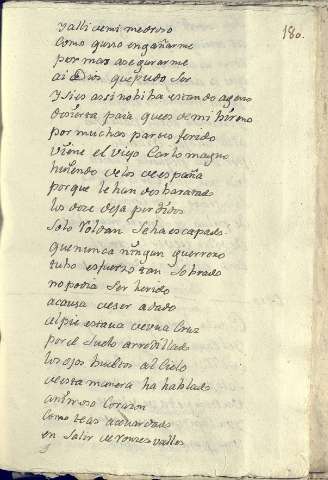 180.
y alli vemi medroso
como quiso engañarme
por mas asegurarme
ai Dios que pudo ser
y si es assi no bi ha estando ageno
desierta paia ques de mi bireno
por muchas partes ferido
viene el viejo Carlo magno
huiendo de los de españa
porque le han desbaratado
los doce deja perdidos
solo Roldan se ha escapado
que nunca ningun guerrero
tubo esfuerzo tan sobrado
no podia ser herido
a causa de ser adado
al pie estaua de una Cruz
por el suelo arrodillado
los ojos bueltos al Cielo
desta manera ha hablado
animoso Corazon
como te as acouardado
en salir de ronzes valles